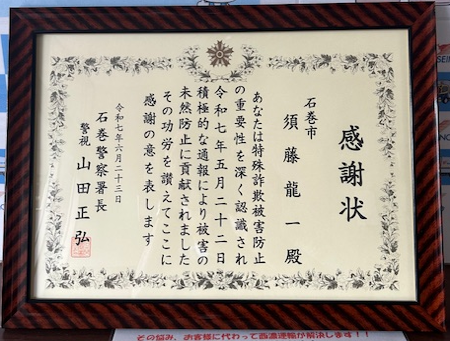 感謝状
石巻市
須藤龍一殿
あなたは特殊詐欺被害防止
の重要性を深く認識され
令和七年五月二十二日
積極的な通報により被害の
未然防止に貢献されました
その功労を讃えてここに
感謝の意を表します
令和七年六月二十三日
石巻警察署長
警視 山田正弘
その悩み、お客様に代わって西濃運輸が解決します！！